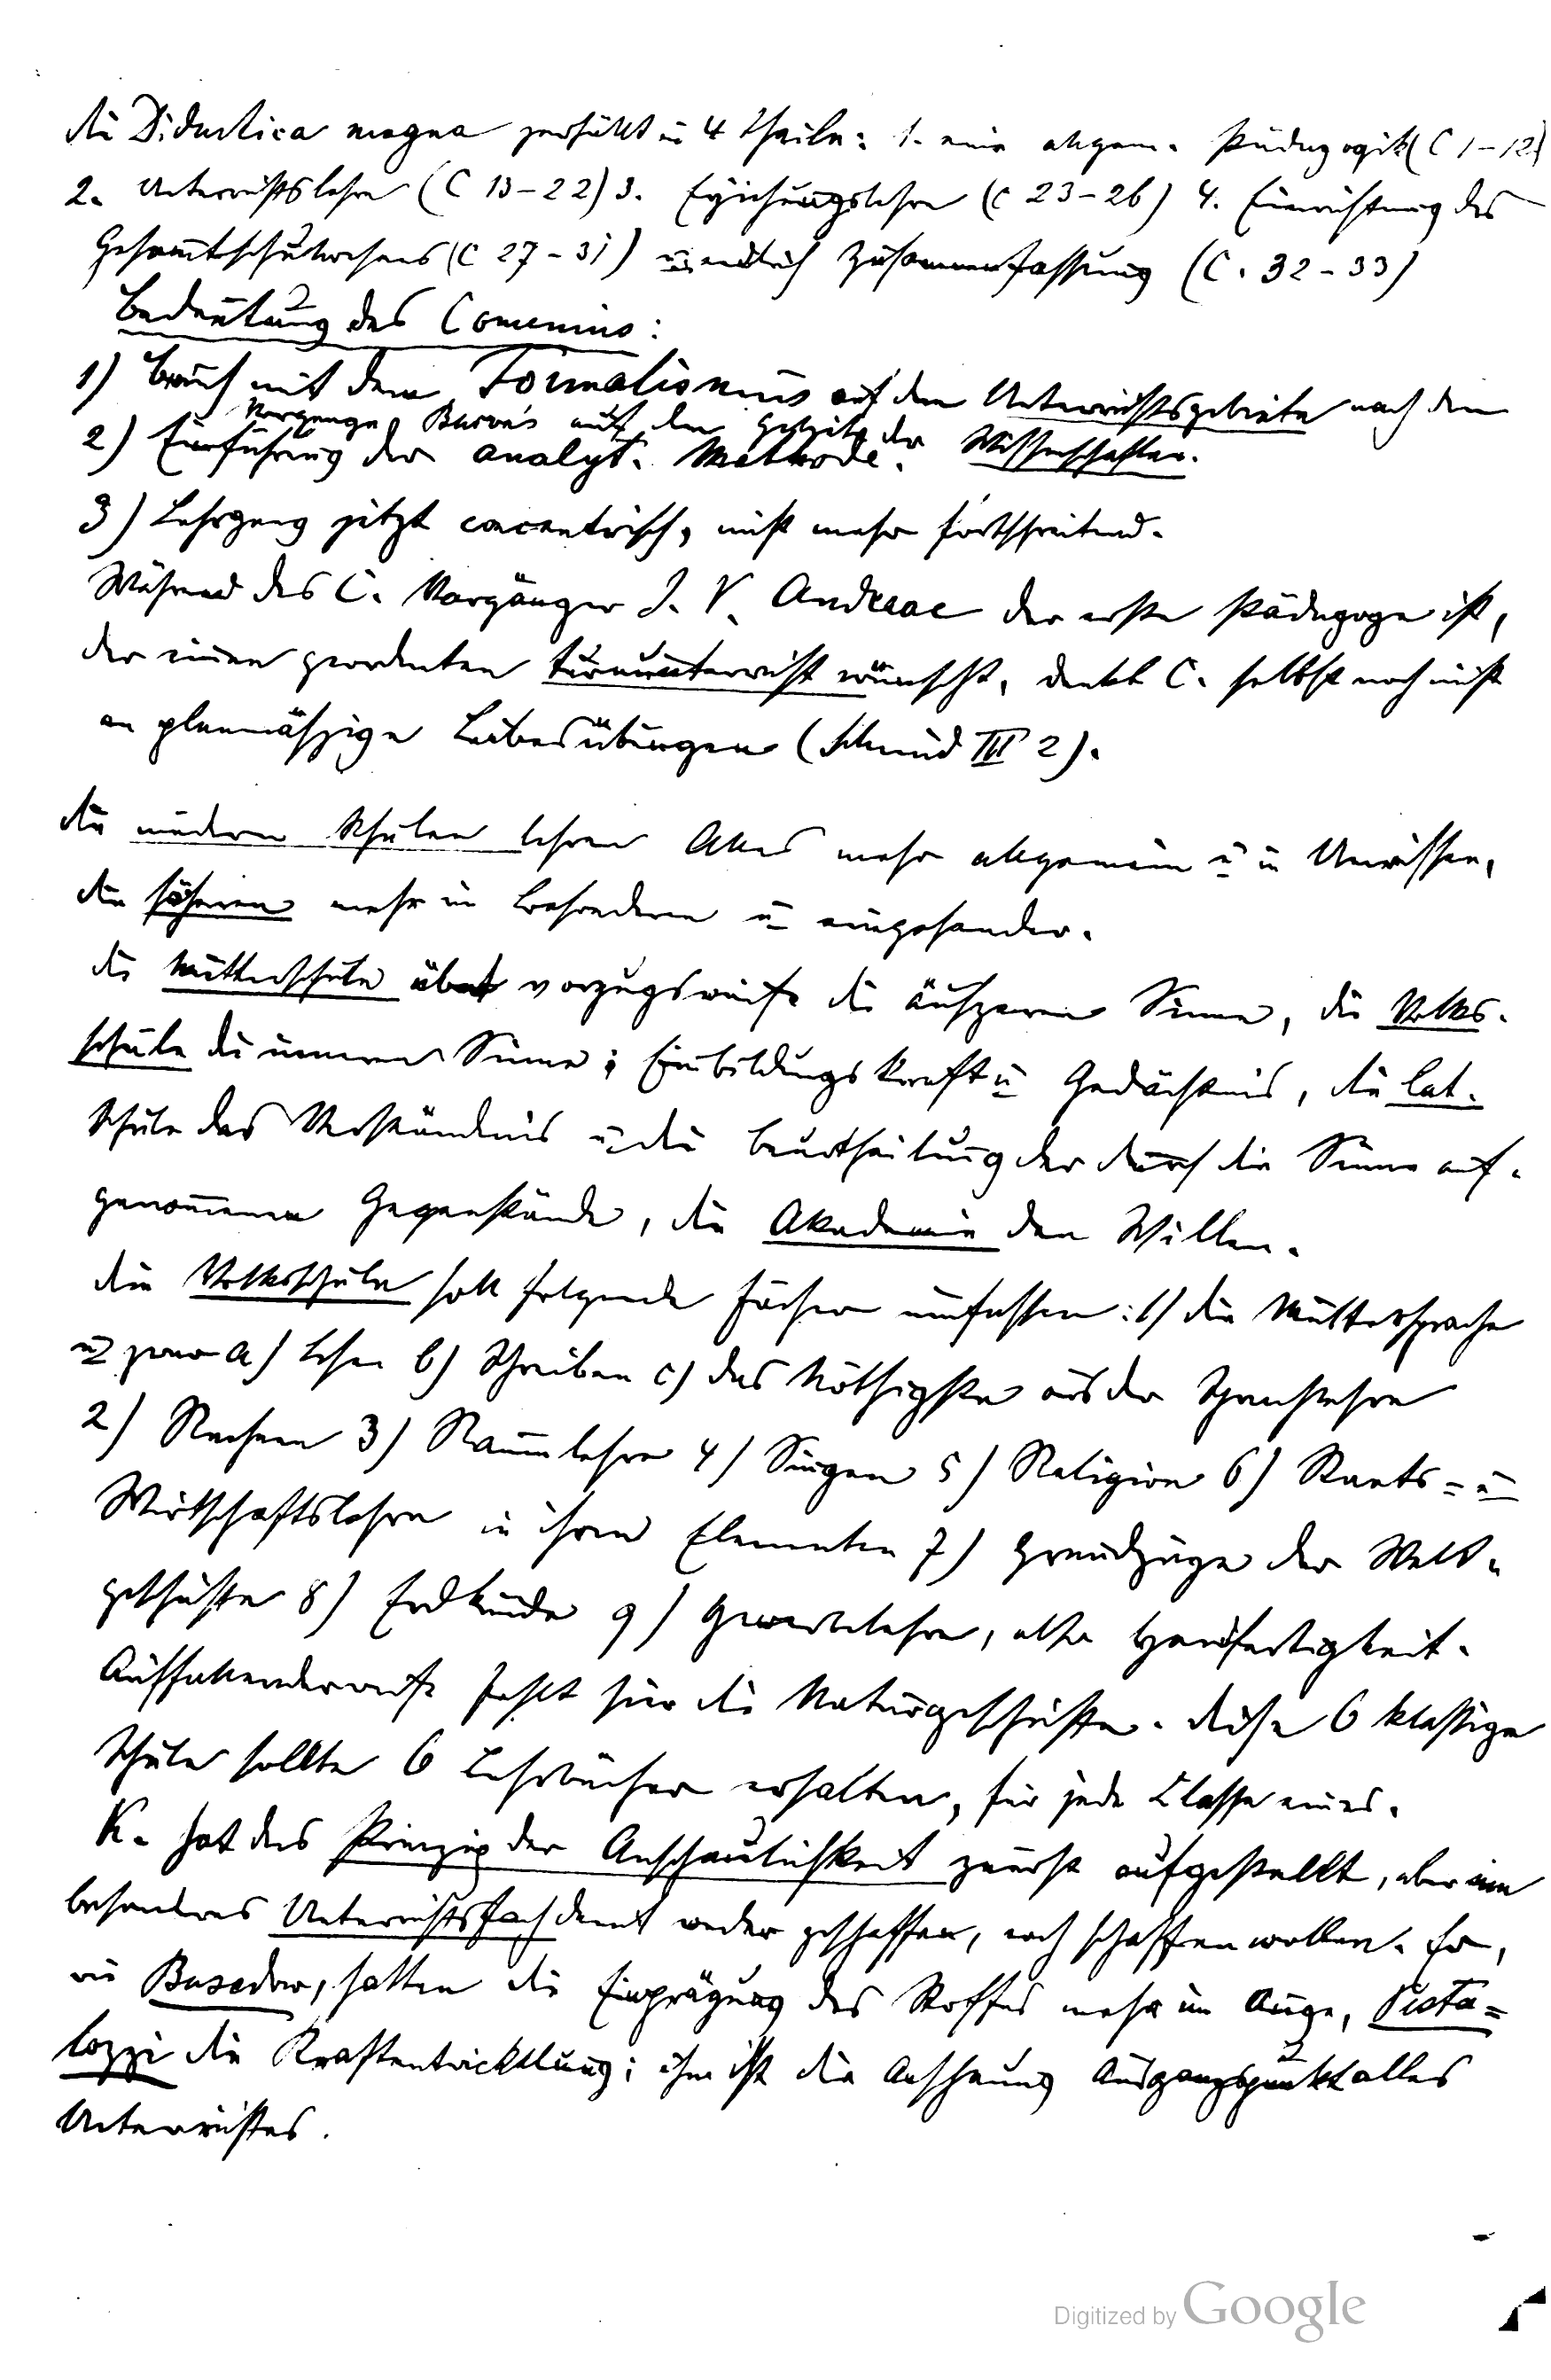 die Didactica magna zerfällt in 4 Theile: 1. eine allgem. Pädagogik (C 1–12)
2. Unterrichtslehre (C 13–22) 3. Erziehungslehre (C 23–26) 4. Einrichtung des
Gesam̅tschulwesens (C 27–31) u endlich Zusammenfassung (C. 32–33)
Bedeutung des Comenius:
1) Bruch mit dem Formalismus auf dem Unterrichtsgebiete nach dem
Vorgange Bacos auf dem Gebiete der Wissenschaften.
2) Einführung der analyt. Methode.
3) Lehrgang jetzt concentrisch, nicht mehr fortschreitend.
Während des C. Vorgänger J. V. Andreae der erste Pädagoge ist,
der einen geordneten Turnunterricht wünscht, denkt C. selbst noch nicht
an planmäszige Leibesübungen (Schmid III 2).
die niedern Schulen lehren Alles mehr allgemein u in Umrissen,
die höheren mehr im Besonderen u eingehender.
die Mutterschule übt vorzugsweise die äuszeren Sinne, die Volks-
schule die inneren Sinne; Einbildungskraft u Gedächtnis, die lat.
Schule das Verständnis u die Beurtheilung der durch die Sinne auf-
genom̅enen Gegenstände, die Akademie den Willen.
die Volksschule soll folgende Fächer umfassen: 1) die Muttersprache
u zwar a) Lesen b) Schreiben c) das Nöthigste aus der Sprachlehre
2) Rechnen 3) Raumlehre 4) Singen 5) Religion 6) Staats= u
Wirtschaftslehre in ihren Elementen 7) Grundzüge der Welt-
geschichte 8) Erdkunde 9) Gewerblehre, also Handfertigkeit.
Auffallenderweise fehlt hier die Naturgeschichte. diese 6 klassige
Schule sollte 6 Lehrbücher erhalten, für jede Classe eines.
K. hat das Prinzip der Anschaulichkeit zuerst aufgestellt, aber ein
besonderes Unterrichtsfach damit weder geschaffen, noch schaffen wollen. Er,
wie Basedow, hatten die Einprägung des Stoffes mehr im Auge, Pesta=
lozzi die Kraftentwicklung; ihm ist die Anschauung Ausgangspunkt alles
Unterrichtes.
Digitized by Google